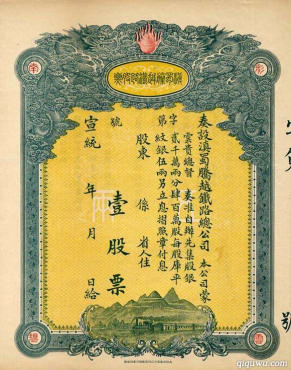 奏設滇蜀騰越鐵路總公司 本公司蒙
雲貴總督 奏准自辦先集股銀
貳千萬兩分肆百萬股每股庫平
紋銀伍兩另立息摺照章付息
字第 號
股東 係 省 人住
壹股票
宣統 年 月 日給
qiqdwu.com